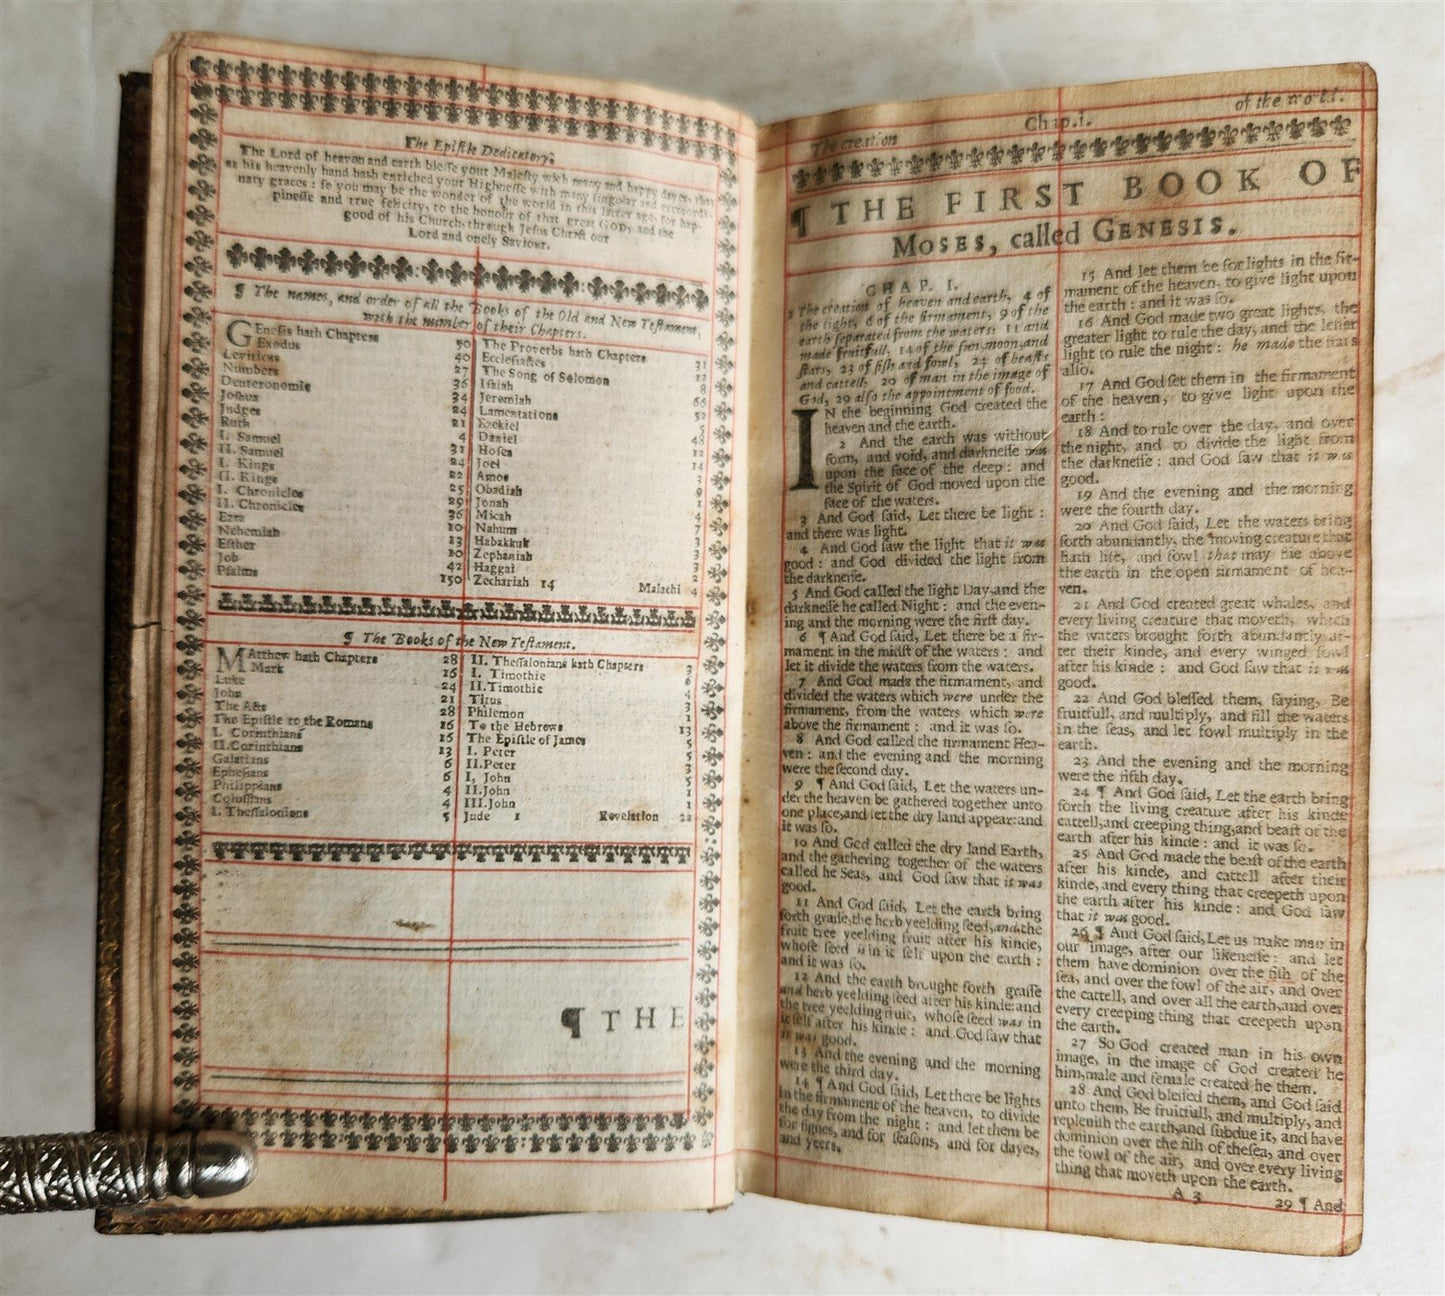 The Epistle Dedicatory.
The Lord of heaven and earth blesse your Majesty with many and happy dayes, that
as his heavenly hand hath enriched your Highnesse with many singular and extraordi-
nary graces: so you may be the wonder of the world in this latter age, for hap-
pinesse and true felicity, to the honour of that great GOD, and the
good of his Church, through Jesus Christ our
Lord and onely Saviour.
¶ The names, and order of all the Books of the Old and New Testament,
with the number of their Chapters.
GEnesis hath Chapters 50
Exodus 40
Leviticus 27
Numbers 36
Deuteronomie 34
Joshua 24
Judges 21
Ruth 4
I. Samuel 31
II. Samuel 24
I. Kings 22
II. Kings 25
I. Chronicles 29
II. Chronicles 36
Ezra 10
Nehemiah 13
Esther 10
Job 42
Psalms 150
The Proverbs hath Chapters 31
Ecclesiastes 12
The Song of Solomon 8
Isaiah 66
Jeremiah 52
Lamentations 5
Ezekiel 48
Daniel 12
Hosea 14
Joel 3
Amos 9
Obadiah 1
Jonah 4
Micah 7
Nahum 3
Habakkuk 3
Zephaniah 3
Haggai 2
Zechariah 14 Malachi 4
¶ The Books of the New Testament.
MAtthew hath Chapters 28
Mark 16
Luke 24
John 21
The Acts 28
The Epistle to the Romans 16
I. Corinthians 16
II. Corinthians 13
Galatians 6
Ephesians 6
Philippians 4
Colossians 4
I. Thessalonians 5
II. Thessalonians hath Chapters 3
I. Timothie 6
II. Timothie 4
Titus 3
Philemon 1
To the Hebrews 13
The Epistle of James 5
I. Peter 5
II. Peter 3
I. John 5
II. John 1
III. John 1
Jude 1 Revelation 22
¶ THE
The creation Chap.i. of the world.
¶ THE FIRST BOOK OF
MOSES, called GENESIS.
CHAP. I.
1 The creation of heaven and earth, 4 of
the light, 6 of the firmament, 9 of the
earth separated from the waters: 11 and
made fruitfull, 14 of the sun, moon, and
stars, 23 of fish and fowl, 24 of beasts
and cattell, 20 of man in the image of
God, 29 also the appointment of food.
IN the beginning God created the
heaven and the earth.
2 And the earth was without
form, and void, and darknesse was
upon the face of the deep: and
the Spirit of God moved upon the
face of the waters.
3 And God said, Let there be light:
and there was light.
4 And God saw the light that it was
good: and God divided the light from
the darknesse.
5 And God called the light Day, and the
darknesse he called Night: and the even-
ing and the morning were the first day.
6 ¶ And God said, Let there be a fir-
mament in the midst of the waters: and
let it divide the waters from the waters.
7 And God made the firmament, and
divided the waters which were under the
firmament, from the waters which were
above the firmament: and it was so.
8 And God called the firmament Hea-
ven: and the evening and the morning
were the second day.
9 ¶ And God said, Let the waters un-
der the heaven be gathered together unto
one place, and let the dry land appear: and
it was so.
10 And God called the dry land Earth,
and the gathering together of the waters
called he Seas, and God saw that it was
good.
11 And God said, Let the earth bring
forth grasse, the herb yeelding seed, and the
fruit tree yeelding fruit after his kinde,
whose seed is in it self upon the earth:
and it was so.
12 And the earth brought forth grasse
and herb yeelding seed after his kinde: and
the tree yeelding fruit, whose seed was in
it self after his kinde: and God saw that
it was good.
13 And the evening and the morning
were the third day.
14 ¶ And God said, Let there be lights
in the firmament of the heaven, to divide
the day from the night: and let them be
for signes, and for seasons, and for dayes,
and yeers.
15 And let them be for lights in the fir-
mament of the heaven, to give light upon
the earth: and it was so.
16 And God made two great lights, the
greater light to rule the day, and the lesser
light to rule the night: he made the stars
also.
17 And God set them in the firmament
of the heaven, to give light upon the
earth:
18 And to rule over the day, and over
the night, and to divide the light from
the darknesse: and God saw that it was
good.
19 And the evening and the morning
were the fourth day.
20 And God said, Let the waters bring
forth abundantly, the moving creature that
hath life, and fowl that may flie above
the earth in the open firmament of hea-
ven.
21 And God created great whales, and
every living creature that moveth, which
the waters brought forth abundantly af-
ter their kinde, and every winged fowl
after his kinde: and God saw that it was
good.
22 And God blessed them, saying, Be
fruitfull, and multiply, and fill the waters
in the seas, and let fowl multiply in the
earth.
23 And the evening and the morning
were the fifth day.
24 ¶ And God said, Let the earth bring
forth the living creature after his kinde
cattell, and creeping thing, and beast of the
earth after his kinde: and it was so.
25 And God made the beast of the earth
after his kinde, and cattell after their
kinde, and every thing that creepeth upon
the earth after his kinde: and God saw
that it was good.
26 ¶ And God said, Let us make man in
our image, after our likenesse: and let
them have dominion over the fish of the
sea, and over the fowl of the air, and over
the cattell, and over all the earth, and over
every creeping thing that creepeth upon
the earth.
27 So God created man in his own
image, in the image of God created he
him, male and female created he them.
28 And God blessed them, and God said
unto them, Be fruitfull, and multiply, and
replenish the earth, and subdue it, and have
dominion over the fish of the sea, and over
the fowl of the air, and over every living
thing that moveth upon the earth.
A 3 29 ¶ And